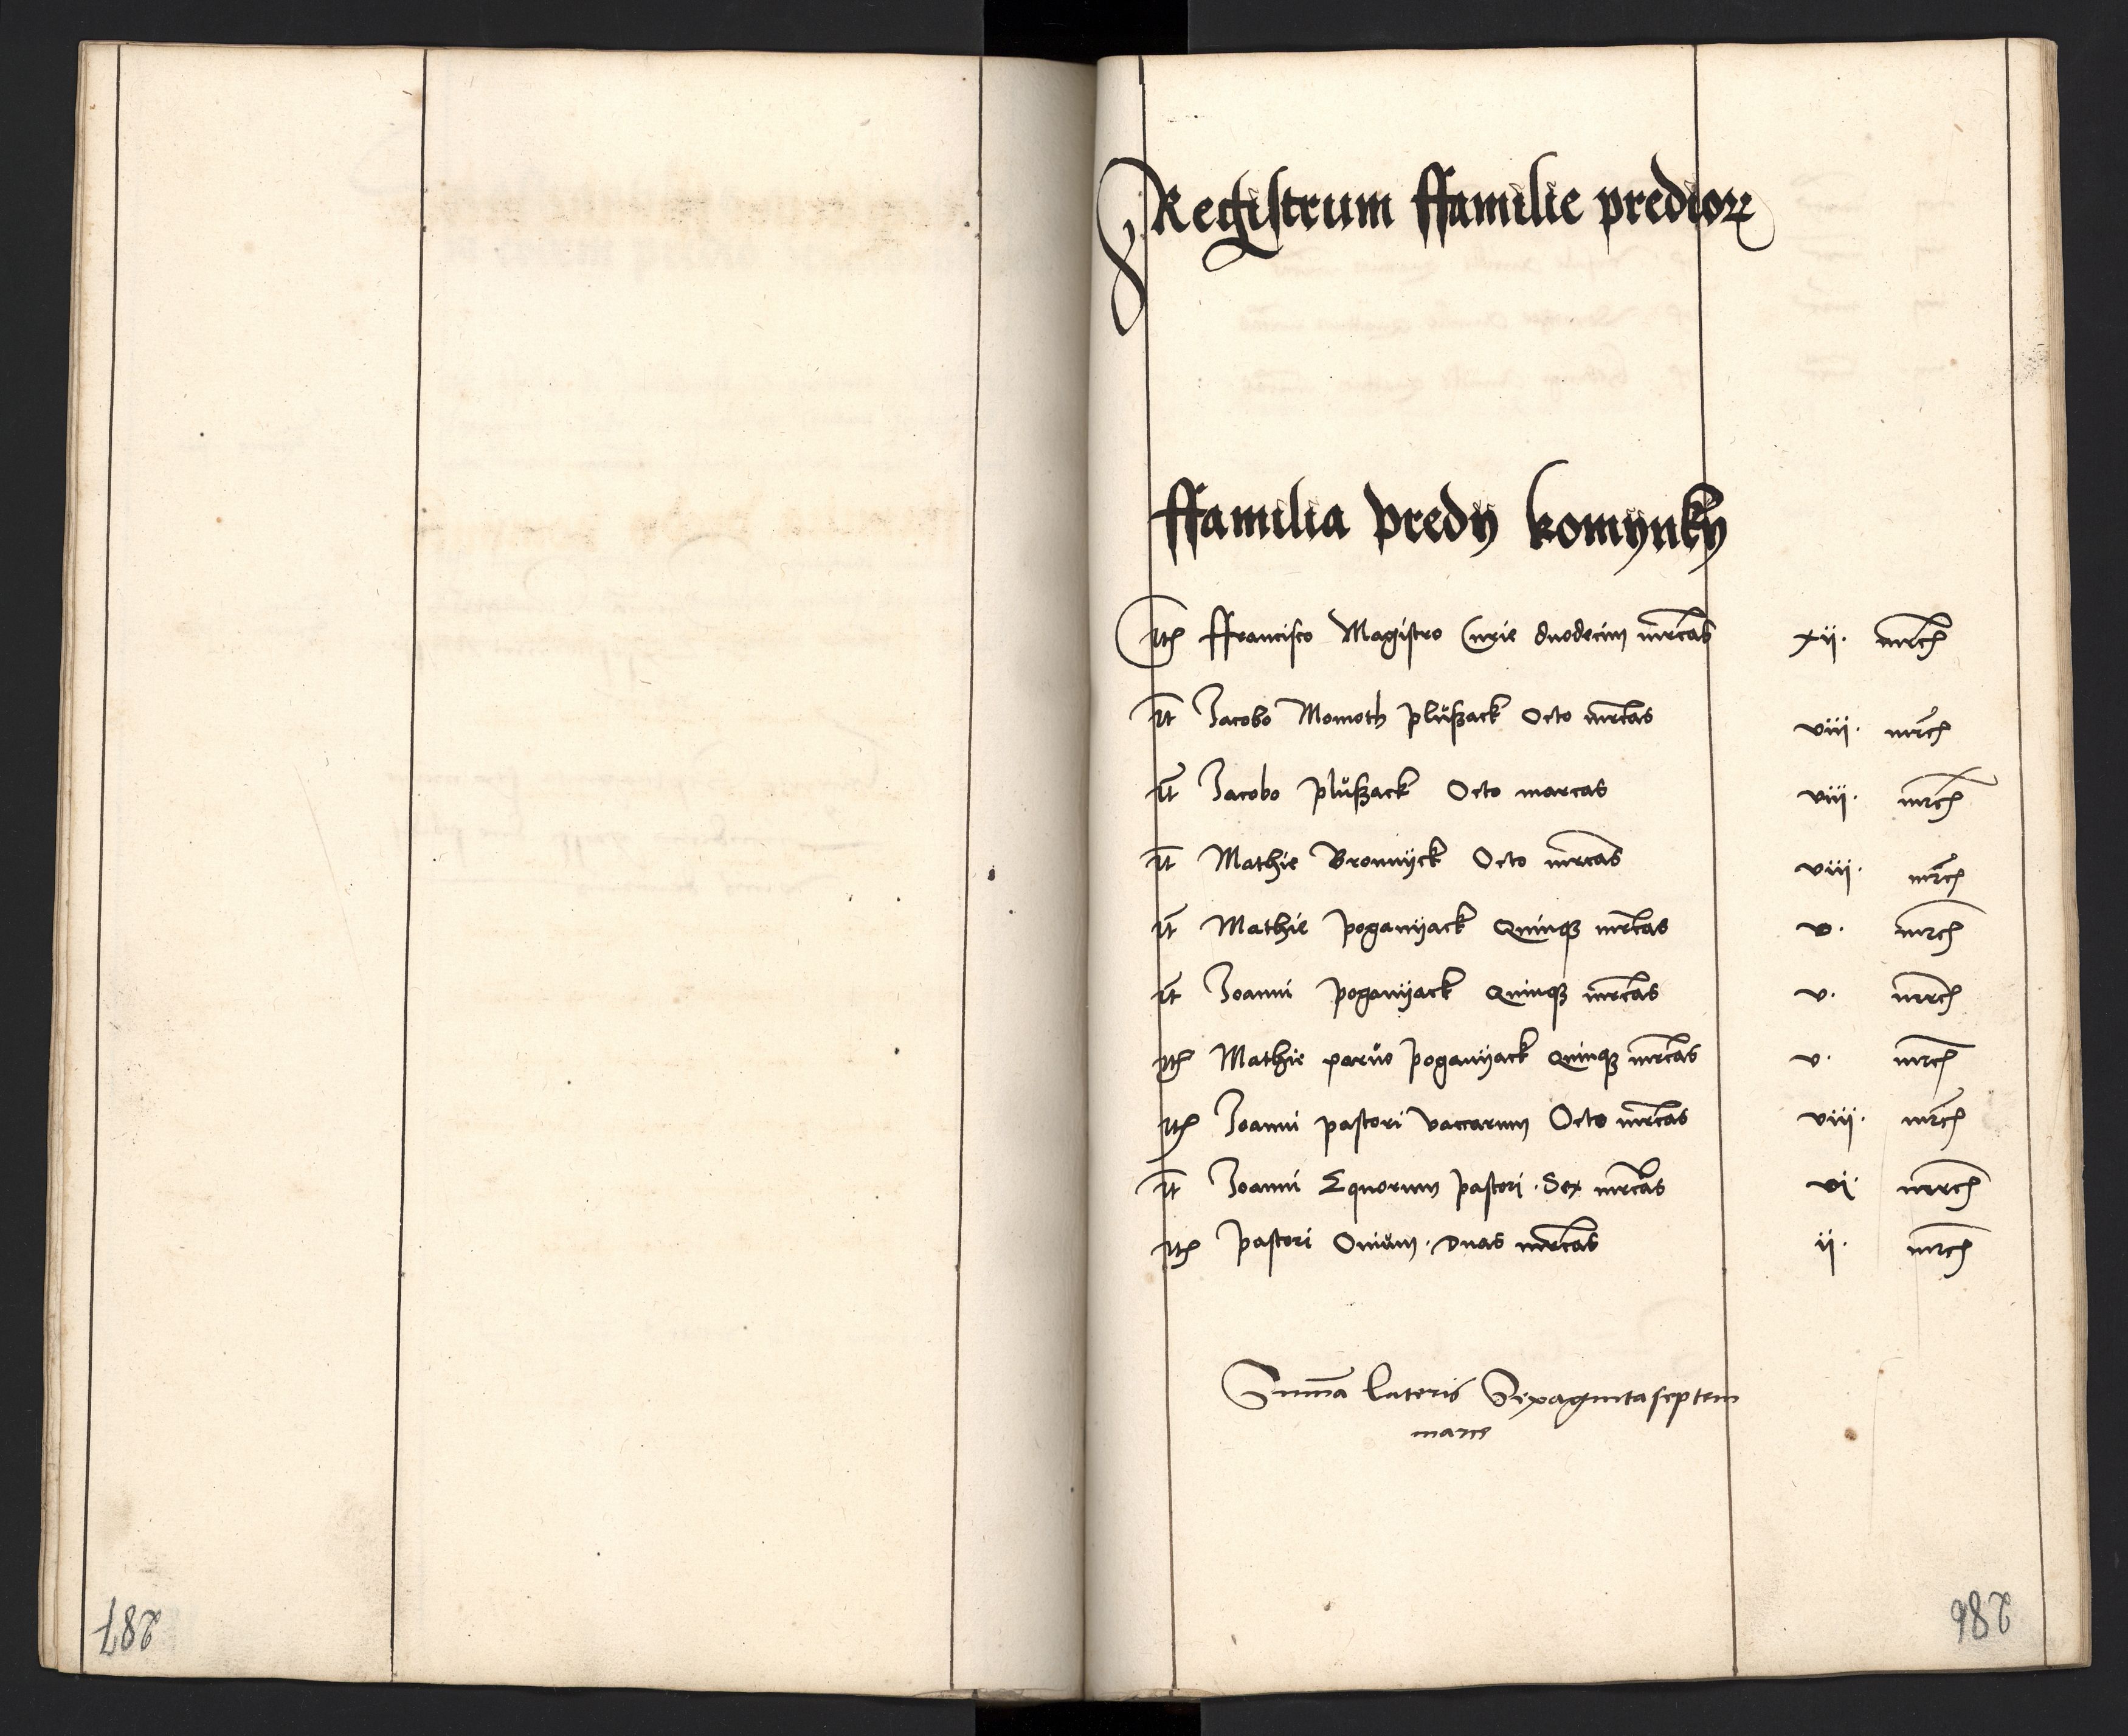 Registrum ffamilie predioꝝ
ffamilia predij komynky
Itē ffrancisco Magistro Curie duodecim mrcas xij. mrc
It Jacobo Momoth plüßack Octo mrcas viij. mrc
It Jacobo plüßack Octo marcas viij. mrc
It Mathie Bronnyck Octo mrcas viij. mrc
It Mathie poganyack Quinqꝫ mrcas v. mrc
It Joanni poganyack Quinqꝫ mrcas v. mrc
Itē Mathie parüo poganyack Quinqꝫ mrcas v. mrc
Itē Joanni pastori vaccarum Octo mrcas viij. mrc
It Joanni Equorum pastori . Sex mrcas vi. mrc
Itē pastori Ouium . Duas mrcas ij. mrc
Suma lateris Sexagintaseptem
marce
287
286